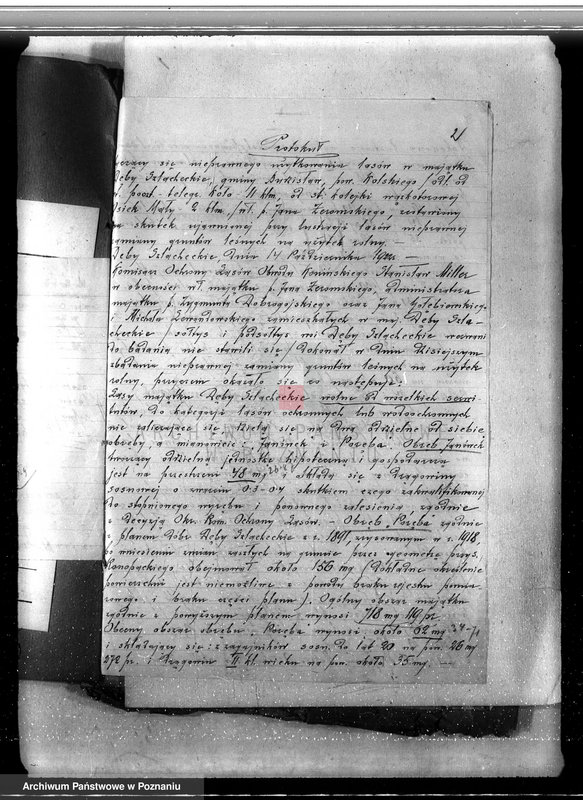 21
Protokuł
się nieprawnego użytkowania lasów w majątku
Dęby Szlacheckie, gminy pow. Kolskiego / odl. od
st. poczt.-telegr. Koło 11 klm, od st. kolejki wązkotorowej
Osiek Mały 2 klm./ wł. p. Jana Żeromskiego,
na skutek ujawnionej przy lustracji lasów nieprawnej
zamiany gruntów leśnych na użytek rolny. —
Dęby Szlacheckie, dnia 14 Października
Komisarz Ochrony Lasów Obwodu Konińskiego Stanisław Miller
w obecności wł. majątku p. Jana Żeromskiego, administratora
majątku p. Zygmunta Dobrogojskiego oraz Jana Gołębiowskiego
i Michała Lewandowskiego zamieszkałych w maj. Dęby Szla-
checkie / sołtys i podsołtys wsi Dęby Szlacheckie wezwani
do badania nie stawili się / dokonał w dniu dzisiejszym
zbadania nieprawnej zamiany gruntów leśnych na użytek
rolny, przyczem okazało się co następuje:
Lasy majątku Dęby Szlacheckie wolne od wszelkich serwi-
tutów, do kategorji lasów ochronnych lub wodoochronnych
nie zaliczające się dzielą się na dwa oddzielne od siebie
obręby, a mianowicie: "Janinek" i "Poręba". Obręb Janinek
tworzący oddzielną jednostkę hipoteczną i gospodarczą
jest na przestrzeni 48 mg i składa się z drągowiny
sosnowej o zwarciu 0.3-0.4 skutkiem czego zakwalifikowanej
do stopniowego wyrębu i ponownego zalesienia, zgodnie
z decyzją Okr. Kom. Ochrony Lasów. — Obręb Poręba zgodnie
z planem dóbr Dęby Szlacheckie z r. 1891, w r. 1918
po wniesieniu zmian zaszłych na gruncie przez geometrę przys.
Konopackiego obejmował około 156 mg (dokładne określenie
powierzchni jest niemożliwe z powodu braku rejestru pomia-
rowego i braku części planu). Ogólny obszar majątku
zgodnie z powyższym planem wynosi 718 mg 119 pr.
Obecny obszar obrębu "Poręba" wynosi około 62 mg
i składający się: z zagajników sosn. do lat 20 na pow. 26 mg
272 pr. i drągowin II kl. wieku na pow. około 35 mg. —
Archiwum Państwowe w Poznaniu